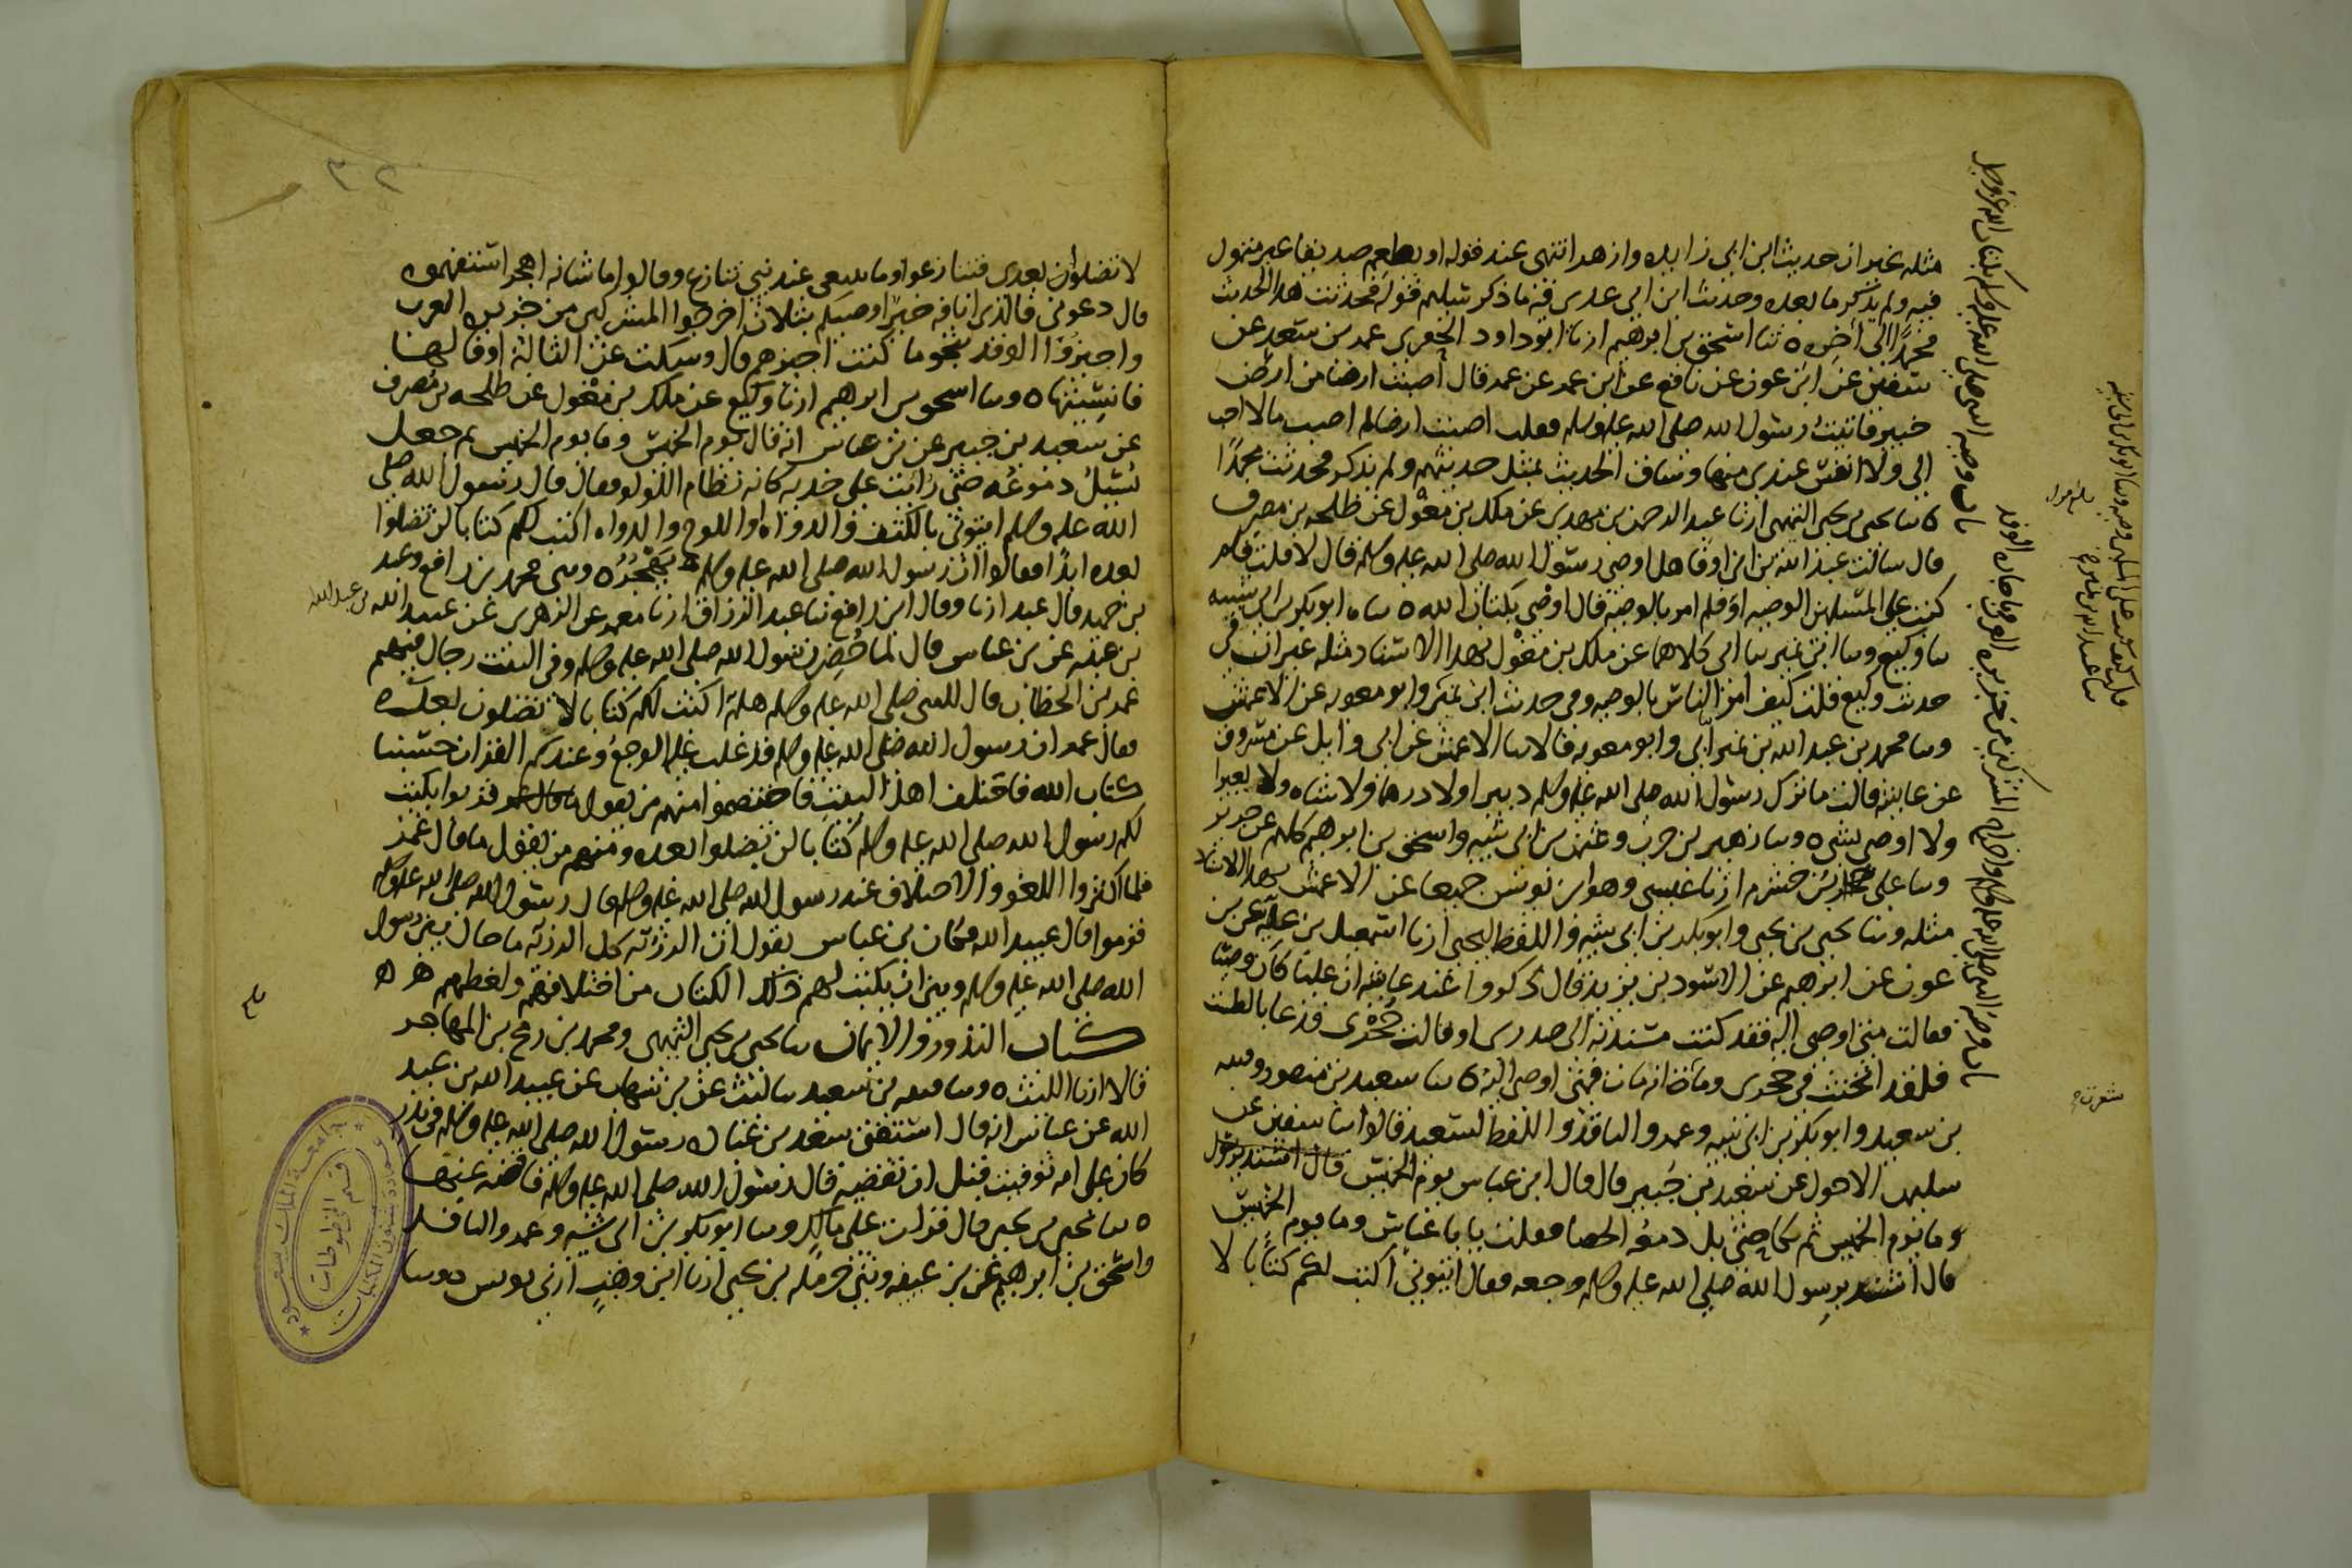 مثله غير ان حديث ابن ابي زايده وازهر انتهى عند قوله او يطعم صديقا غير متمول
فيه ولم يذكر ما بعده وحديث ابن ابي عدي فيه ما ذكر سليم قوله فحدثت هذا الحديث
محمدًا الى اخره ٥ ثنا اسحق بن ابرهيم ارنا ابو داود الحفري عمر بن سعد عن
سفين عن ابن عون عن نافع عن ابن عمر عن عمر قال اصبت ارضا من ارض
خيبر فاتيت رسول الله صلى الله عليه وسلم فقلت اصبت ارضا لم اصب مالا احب
الي ولا انفس عندي منها وساق الحديث بمثل حديثهم ولم يذكر فحدثت محمدًا
٥ ثنا يحيى بن يحيى التميمي ارنا عبد الرحمن بن مهدي عن ملك بن مغول عن طلحه بن مصرف
قال سالت عبد الله بن ابي اوفى هل اوصى رسول الله صلى الله عليه وسلم قال لا قلت فلم
كتب على المسلمين الوصيه او فلم امر بالوصيه قال اوصى بكتاب الله ٥ ثناه ابو بكر بن ابي شيبه
ثنا وكيع وثنا ابن نمير ثنا ابي كلاهما عن ملك بن مغول بهذا الاسناد مثله غير ان في
حديث وكيع قلت كيف امر الناس بالوصيه وفي حديث ابن نمير وابو معويه عن الاعمش
وثنا محمد بن عبد الله بن نمير ابي وابو معويه قالا ثنا الاعمش عن ابي وايل عن مسروق
عن عايشه قالت ما ترك رسول الله صلى الله عليه وسلم دينرا ولا درهما ولا شاه ولا بعيرا
ولا اوصى بشي ٥ وثنا زهير بن حرب وعثمن بن ابي شيبه واسحق بن ابرهيم كلهم عن جرير
وثنا علي بن خشرم ارنا عيسى وهو ابن يونس جميعا عن الاعمش بهذا الاسناد
مثله وثنا يحيى بن يحيى وابو بكر بن ابي شيبه واللفظ ليحيى ارنا اسمعيل بن عليه عن بن
عون عن ابرهيم عن الاسود بن يزيد قال ذكروا عند عايشه ان عليا كان وصيا
فقالت متى اوصى اليه فقد كنت مسندته الى صدري او قالت حجري فدعا بالطست
فلقد انخنث في حجري وما انه مات فمتى اوصى اليه ٥ ثنا سعيد بن منصور وقتيبه
بن سعيد وابو بكر بن ابي شيبه وعمرو الناقد واللفظ لسعيد قالوا ثنا سفين عن
سليمن الاحول عن سعيد بن جبير قال قال ابن عباس يوم الخميس قال اشتد برسول
وما يوم الخميس ثم بكا حتى بل دمعه الحصا فقلت يابا عباس وما يوم الخميس
قال اشتد برسول الله صلى الله عليه وسلم وجعه فقال ايتوني اكتب لكم كتابا لا
باب وصيه النبي صلى الله عليه وسلم بكتاب الله عز وجل
باب وصيه النبي صلى الله عليه وسلم واخراج المشركين من جزيره العرب وباجازه الوفد
٣٢
لا تضلوا بعدي فتنازعوا وما ينبغي عند نبي تنازع وقالوا ما شانه اهجر استفهموه
قال دعوني فالذي انا فه خير اوصيكم بثلاث اخرجوا المشركين من جزيره العرب
واجيزوا الوفد بنحو ما كنت اجيزهم قال وسكت عن الثالثة او قالها
فانسيتها ٥ وثنا اسحق بن ابرهيم ارنا وكيع عن ملك بن مغول عن طلحه بن مصرف
عن سعيد بن جبير عن بن عباس انه قال يوم الخميس وما يوم الخميس ثم جعل
تسيل دموعه حتى رايت على خديه كانه نظام اللولو فقال قال رسول الله صلى
الله عليه وسلم ايتوني بالكتف والدواه او اللوح والدواه اكتب لكم كتابا لن تضلوا
بعده ابدًا فقالوا ان رسول الله صلى الله عليه وسلم يهجر ٥ وثني محمد بن رافع وعبد
بن حميد قال عبد ارنا وقال ابن رافع ثنا عبد الرزاق ارنا معمر عن الزهري عن عبيد الله بن عبد الله
بن عتبه عن بن عباس قال لما حضر رسول الله صلى الله عليه وسلم وفي البيت رجال فيهم
عمر بن الخطاب قال النبي صلى الله عليه وسلم هلم اكتب لكم كتابا لا تضلون بعده
فقال عمر ان رسول الله صلى الله عليه وسلم قد غلب عليه الوجع وعندكم القران حسبنا
كتاب الله فاختلف اهل البيت فاختصموا منهم من يقول قربوا يكتب
لكم رسول الله صلى الله عليه وسلم كتابا لن تضلوا بعده ومنهم من يقول ما قال عمر
فلما اكثروا اللغو والاختلاف عند رسول الله صلى الله عليه وسلم قال رسول الله صلى الله عليه وسلم
قوموا قال عبيد الله فكان بن عباس يقول ان الرزيه كل الرزيه ما حال بين رسول
الله صلى الله عليه وسلم وبين ان يكتب لهم ذلك الكتاب من اختلافهم ولغطهم
كتاب النذور والايمان ثنا يحيى بن يحيى التميمي ومحمد بن رمح بن المهاجر
قالا ارنا الليث ٥ وثنا قتيبه بن سعيد ثنا ليث عن بن شهاب عن عبيد الله بن عبد
الله عن بن عباس انه قال استفتى سعد بن عباده رسول الله صلى الله عليه وسلم في نذر
كان على امه توفيت قبل ان تقضيه قال رسول الله صلى الله عليه وسلم فاقضه عنها
٥ ثنا يحيى بن يحيى قال قرات على مالك وثنا ابو بكر بن ابي شيبه وعمرو الناقد
واسحق بن ابرهيم عن بن عيينه وثني حرمله بن يحيى ارنا ابن وهب ارني يونس وثنا
جامعة الملك سعود
قسم المخطوطات